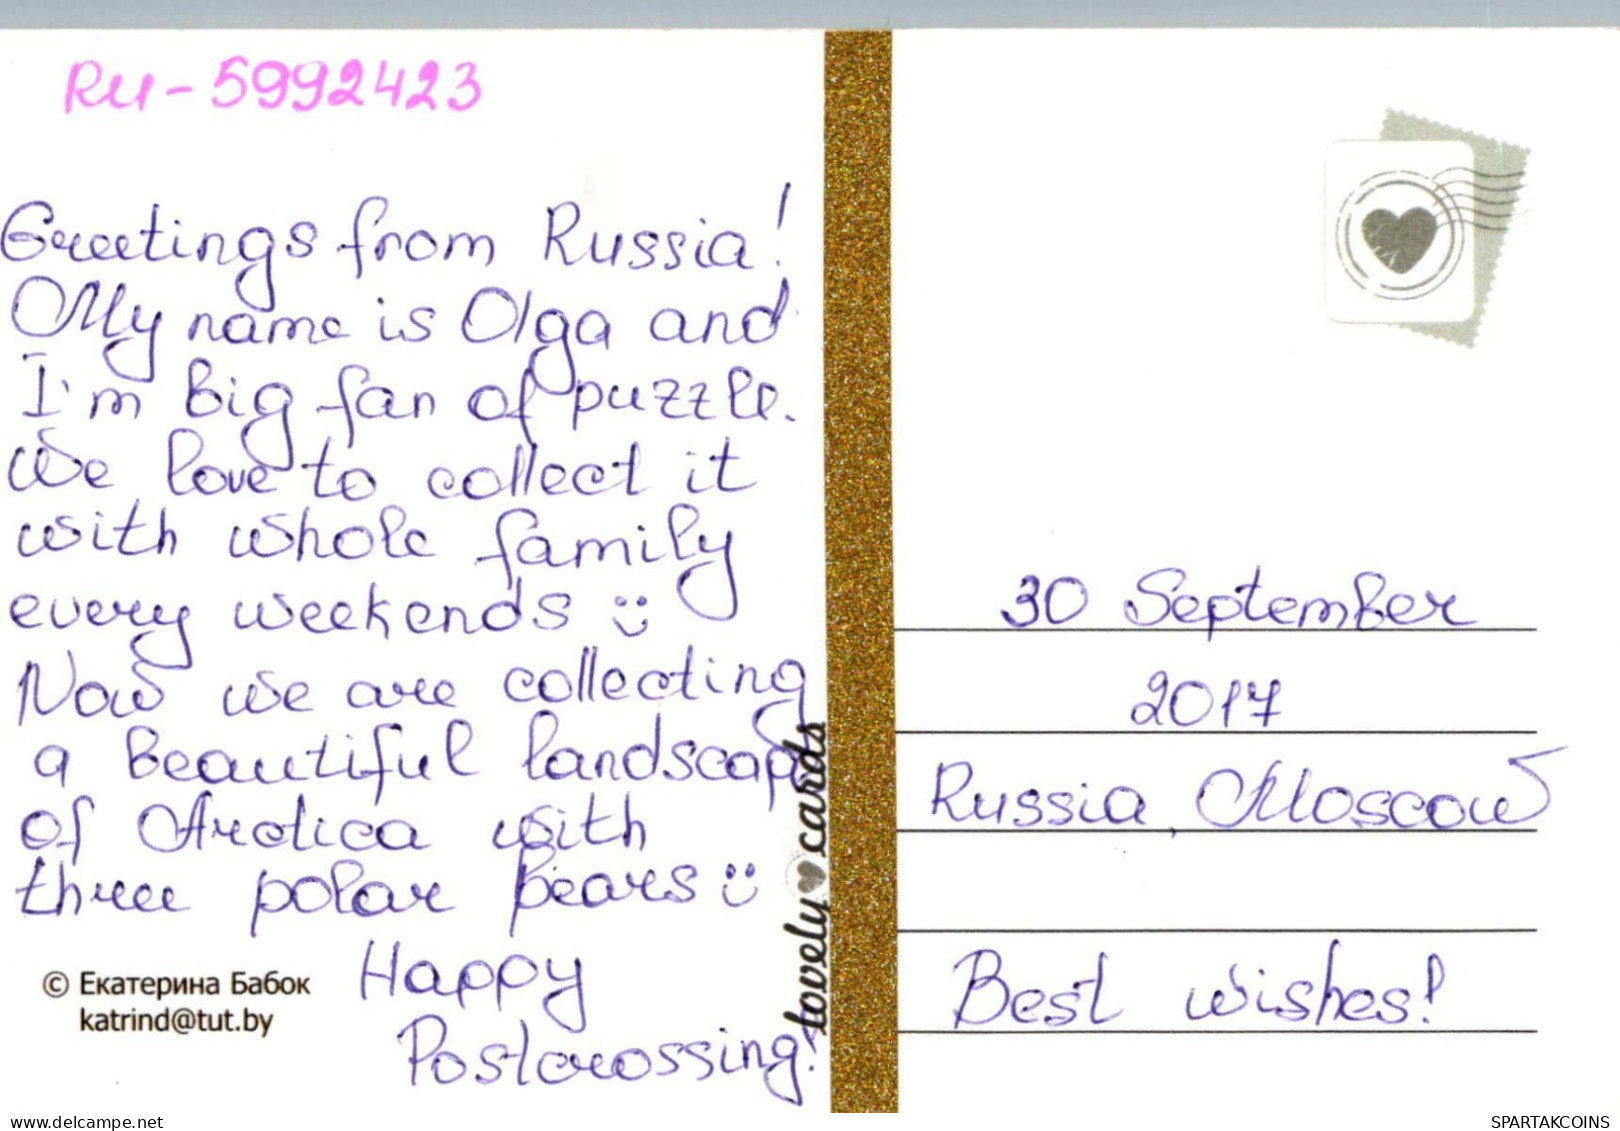 RU-5992423
Greetings from Russia!
My name is Olga and
I'm big fan of puzzle.
We love to collect it
with whole family
every weekends :)
Now we are collecting
a beautiful landscape
of Arctica with
three polar bears :)
Happy
Postcrossing!
© Екатерина Бабок
katrind@tut.by
lovely cards
30 September
2017
Russia, Moscow
Best wishes!
www.delcampe.net
SPARTAKCOINS